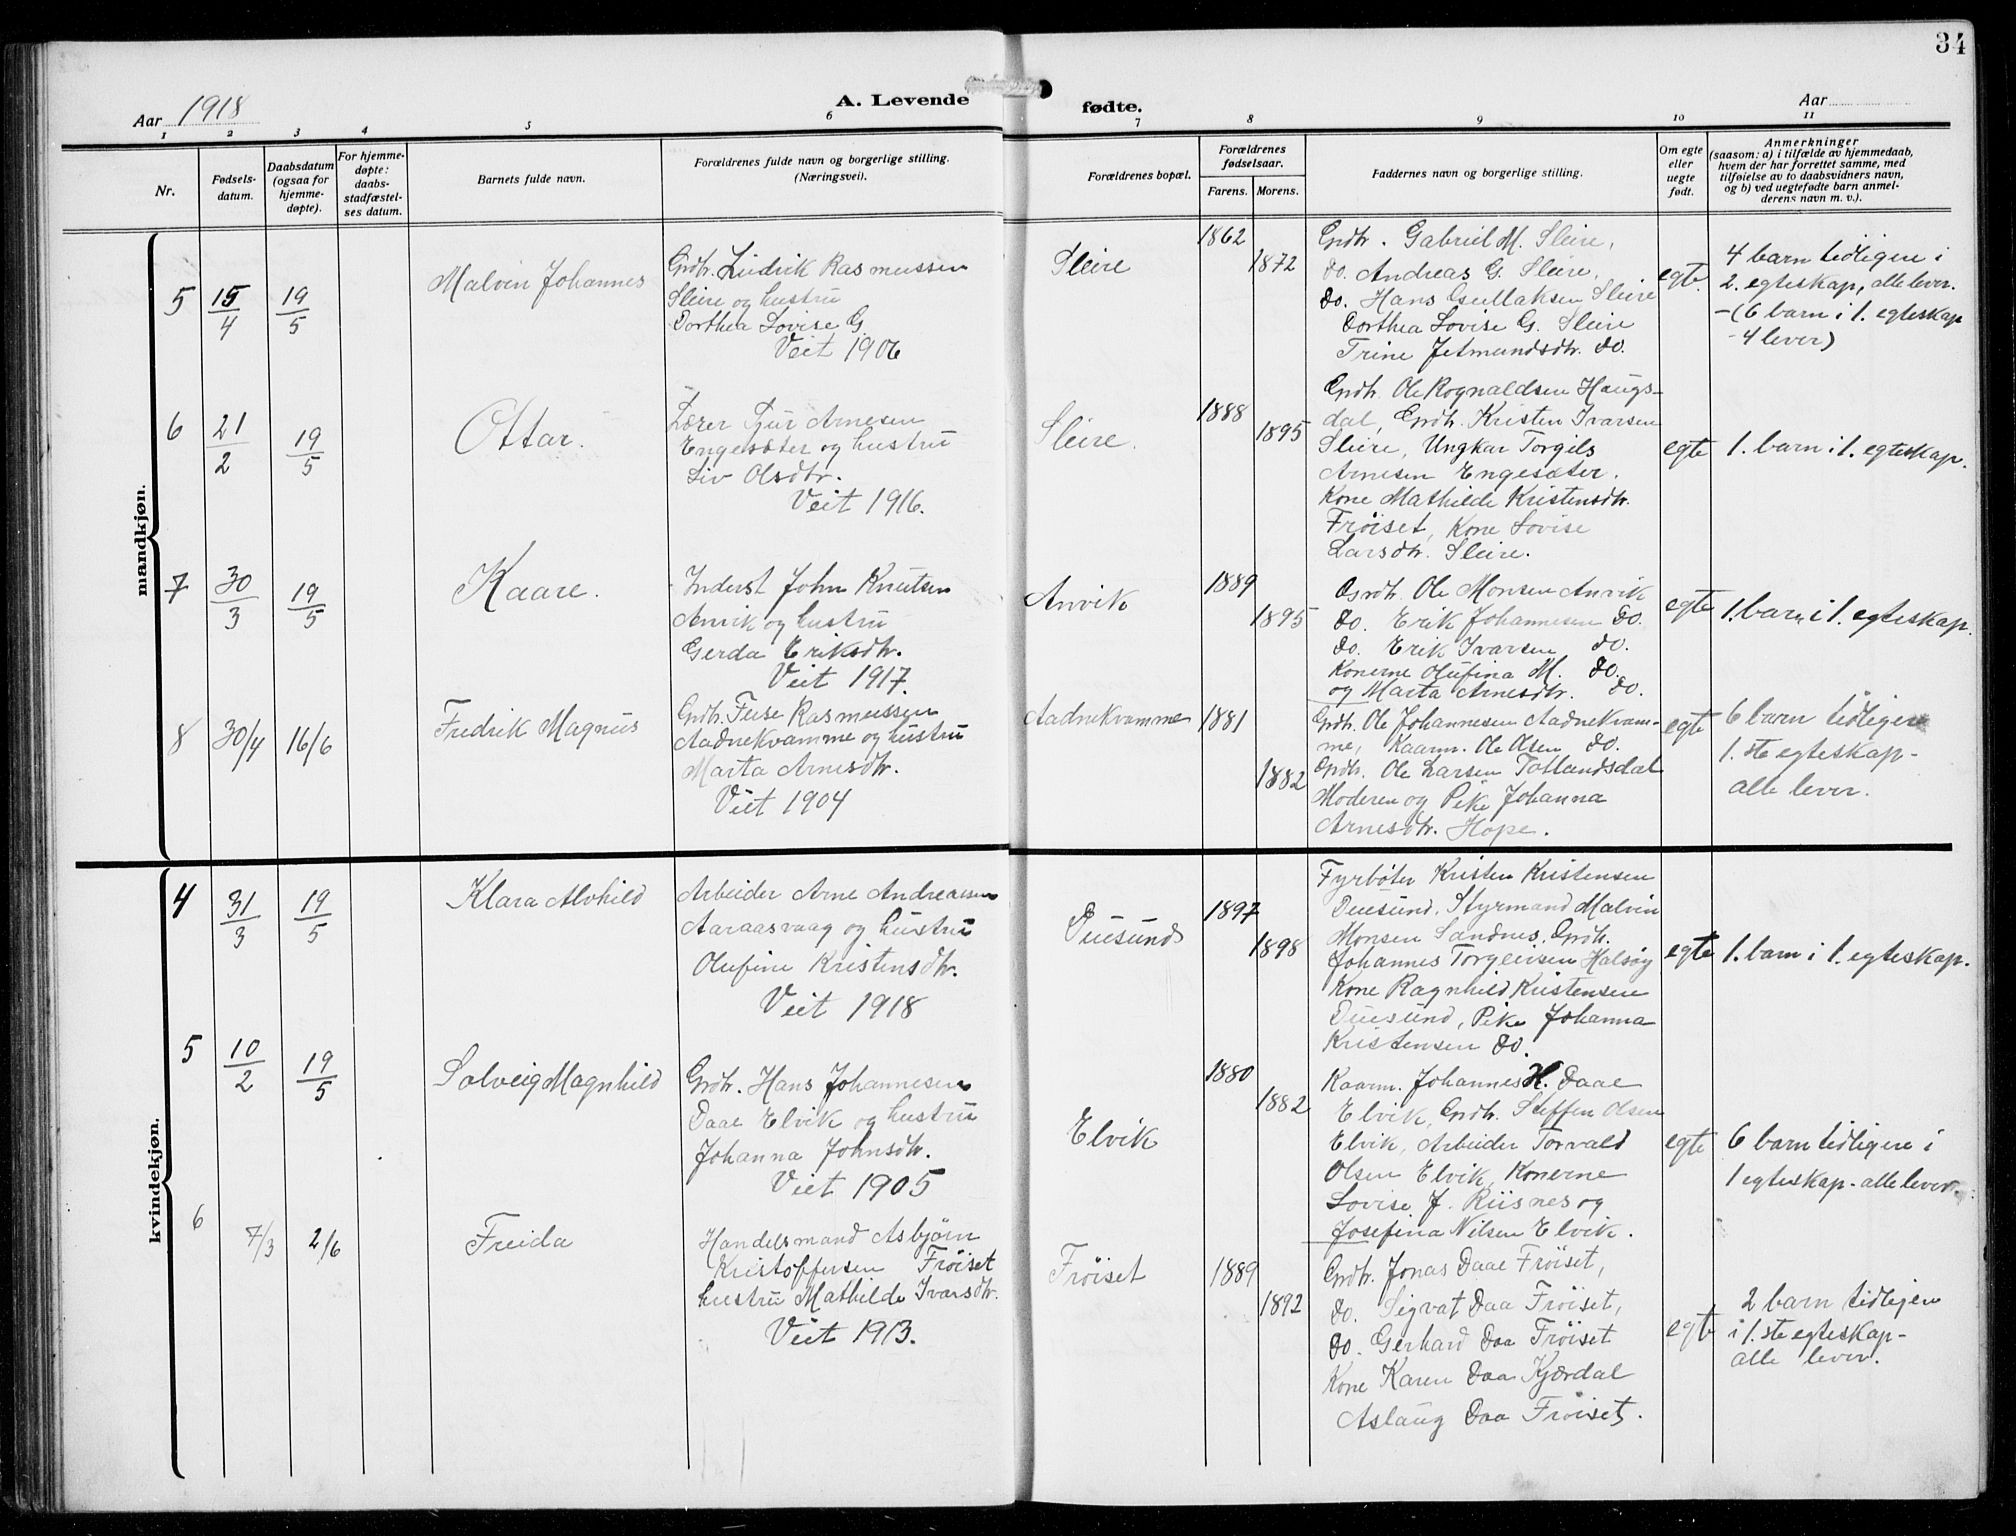 34
Aar 1918
A. Levende fødte.
Aar
1 2 3 4 5 6 7 8 9 10 11
Nr.
Fødsels-
datum.
Daabsdatum
(ogsaa for
hjemme-
døpte).
For hjemme-
døpte:
daabs-
stadfæstel-
ses datum.
Barnets fulde navn.
Forældrenes fulde navn og borgerlige stilling.
(Næringsvei).
Forældrenes bopæl.
Forældrenes
fødselsaar.
Farens. Morens.
Faddernes navn og borgerlige stilling.
Om egte
eller
uegte
født.
Anmerkninger
(saasom: a) i tilfælde av hjemmedaab,
hvem der har forrettet samme, med
tilføielse av to daabsvidners navn,
og b) ved uegtefødte barn anmel-
derens navn m. v.).
mandkjøn.
5
15/4
19/5
Malvin Johannes
Grdbr. Ludvik Rasmussen
Sleire og hustru
Dorthea Lovise G.
Veit 1906
Sleire
1862
1872
Grdbr. Gabriel M. Sleire,
do. Andreas G. Sleire,
do. Hans Gullaksen Sleire
Dorthea Lovise G. Sleire
Trine Jetmundsdtr. do.
egte
4 barn tidligere i
2. egteskap, alle lever.
-(6 barn i 1. egteskap
-4 lever)
6
21/2
19/5
Ottar.
Lærer Tjur Arnesen
Engesæter og hustru
Liv Olsdtr.
Veit 1916.
Sleire.
1888
1895
Grdbr. Ole Rognaldsen Haugs-
dal, Grdbr. Kristen Ivarsen
Sleire, Ungkar Torgils
Arnesen Engesæter.
Kone Mathilde Kristensdtr.
Frøiset, Kone Lovise
Larsdtr. Sleire.
egte
1. barn i 1. egteskap.
7
30/3
19/5
Kaare.
Inderst John Knutsen
Anvik og hustru
Gerda Eriksdtr.
Veit 1917.
Anvik
1889
1895
Grdbr. Ole Monsen Anvik
do. Erik Johannesen do.
do. Erik Ivarsen do.
Konerne Olufina M. do.
og Marta Arnesdtr. do.
egte
1. barn i 1. egteskap.
8
30/4
16/6
Fredrik Magnus
Grdbr. Feise Rasmussen
Aadnekvamme og hustru
Marta Arnesdtr.
Veit 1904
Aadnekvamme
1881
1882
Grdbr. Ole Johannesen Aadnekvam-
me, Kaarm. Ole Olsen do.
Grdbr. Ole Larsen Totlandsdal
Moderen og Pike Johanna
Arnesdtr. Hope.
egte
6 barn tidligere
1.ste egteskap-
alle lever.
kvindekjøn.
4
31/3
19/5
Klara Alvhild
Arbeider Arne Andreassen
Aaraasvaag og hustru
Olufine Kristensdtr.
Veit 1918
Duesund
1897
1898
Fyrbøter Kristen Kristensen
Duesund, Styrmand Malvin
Monsen Sandnes, Grdbr.
Johannes Torgeirsen Halsøy
Kone Ragnhild Kristensen
Duesund, Pike Johanna
Kristensen do.
egte
1. barn i 1. egteskap.
5
10/2
19/5
Solveig Magnhild
Grdbr. Hans Johannesen
Daae Elvik og hustru
Johanna Johnsdtr.
Veit 1905
Elvik
1880
1882
Kaarm. Johannes H. Daae
Elvik, Grdbr. Steffen Olsen
Elvik, Arbeider Torvald
Olsen Elvik, Konerne
Lovise J. Riisnes og
Josefina Nilsen Elvik.
egte
6 barn tidligere i
1 egteskap - alle lever.
6
7/3
2/6
Freida
Handelsmand Asbjørn
Kristoffersen Frøiset
hustru Mathilde Ivarsdtr.
Veit 1913.
Frøiset
1889
1892
Grdbr. Jonas Daae Frøiset,
do. Sigvat Daa Frøiset,
do. Gerhard Daa Frøiset
Kone Karen Daa Kjærdal
Aslaug Daa Frøiset.
egte
2 barn tidligere
i 1.ste egteskap-
alle lever.